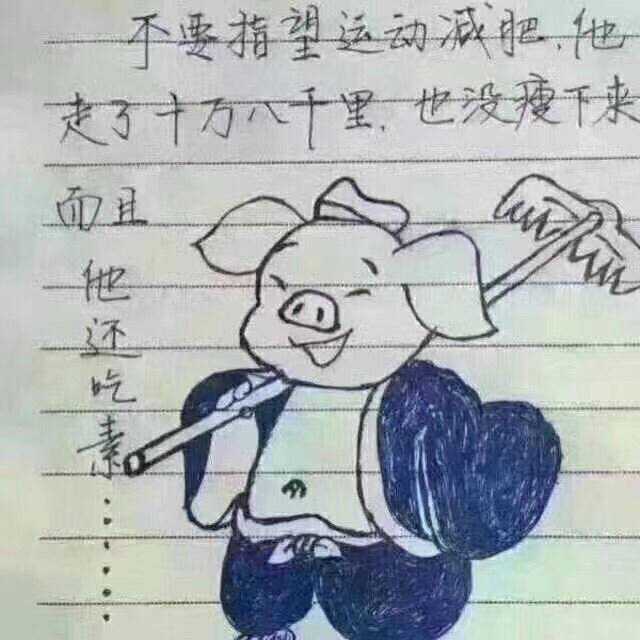 不要指望运动减肥,他
走了十万八千里,也没瘦下来
而且
他
还
吃
素......